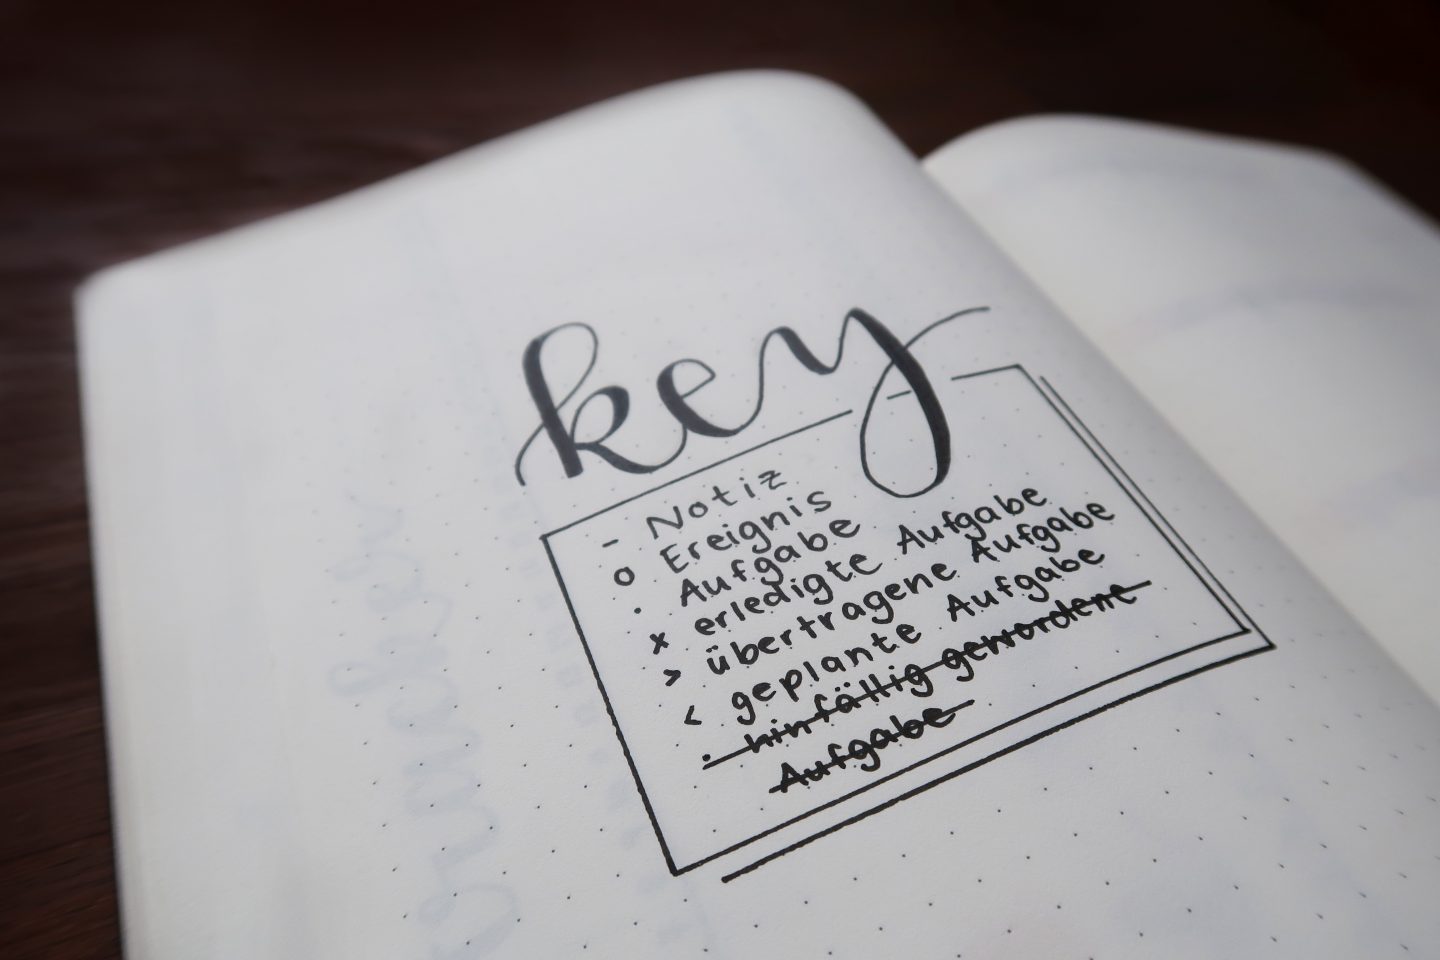 key
- Notiz
o Ereignis
. Aufgabe
x erledigte Aufgabe
> übertragene Aufgabe
< geplante Aufgabe
. hinfällig gewordene
Aufgabe